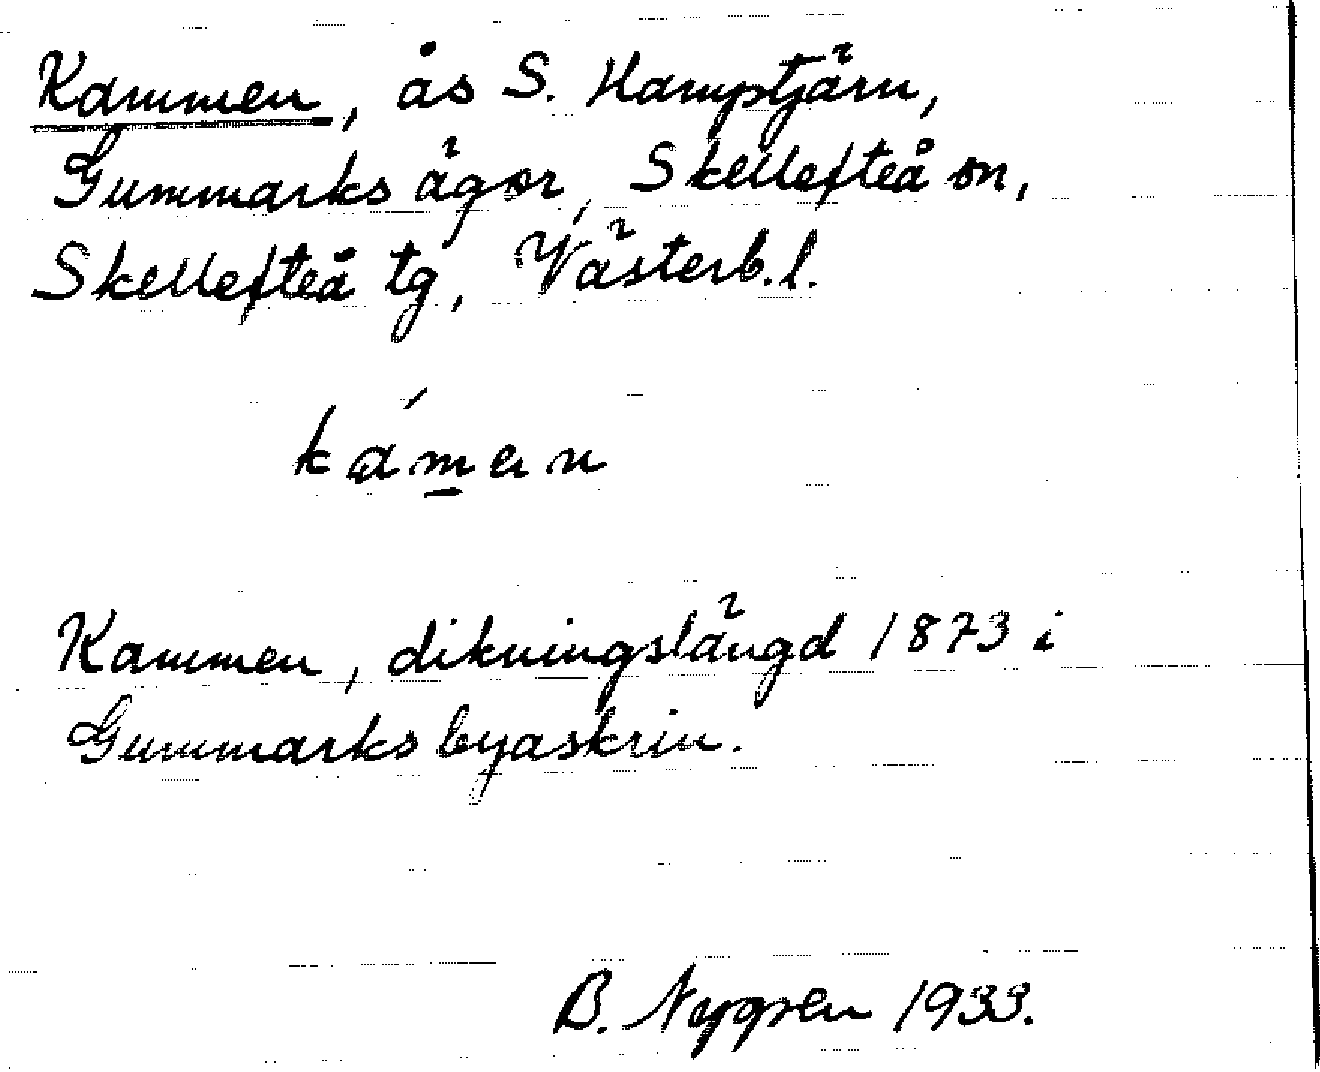 Kammen, ås S. Hamptjärn,
Gummarks ägor, Skellefteå sn,
Skellefteå tg, Västerb.l.
ká̱men
Kammen, dikningslängd 1873 i
Gummarks byaskrin.
B. Nygren 1933.